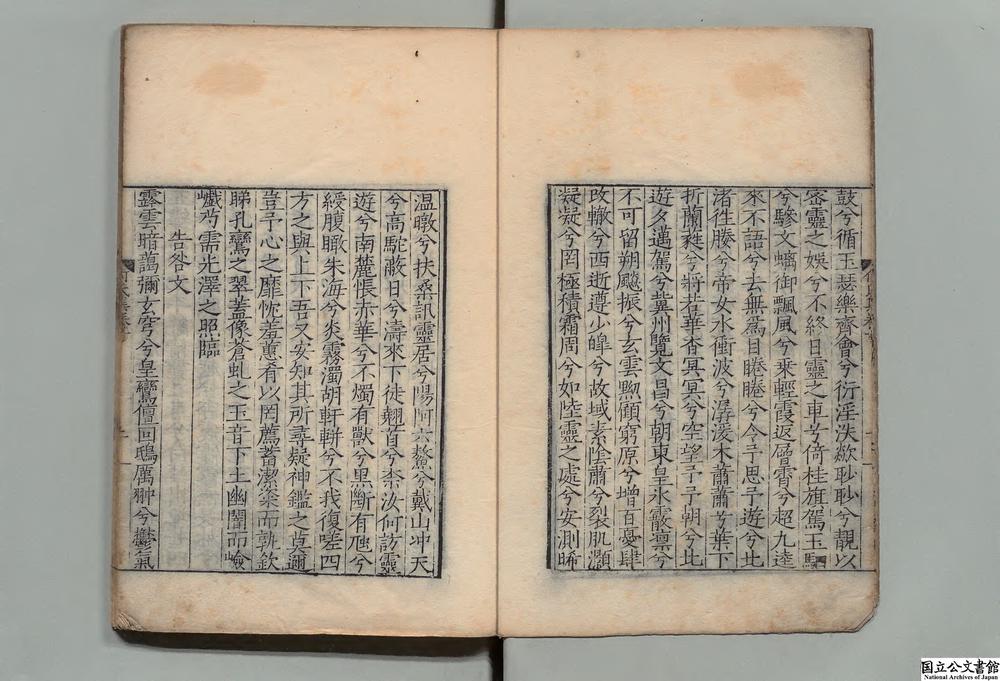 鼓兮循玉瑟樂齊會兮衍淫泆欻眇眇兮覯以
宻靈之娛兮不終日靈之車兮倚桂旗駕玉
兮驂文螭御飄風兮乗輕霞返層霄兮超九逵
來不語兮去無爲目睠睠兮令予思予遊兮北
渚徃媵兮帝女水衝波兮潺湲木蕭蕭兮葉下
折蘭蕤兮將若華杳冥冥兮空望予予朝兮北
遊夕邁駕兮冀州覽文昌兮朝東皇氷霰凛兮
不可留朔飈振兮玄雲黝顧窮原兮增百憂肆
改轍兮西逝遵少皥兮故域素隂肅兮裂肌灝
凝凝兮罔極積霜周兮如陸靈之處兮安測晞
温暾兮扶桑訊靈居兮陽阿六鰲兮戴山冲天
兮高駝蔽日兮濤來下徒翹首兮柰汝何訪靈
遊兮南麓悵亦華兮不燭有獸兮黒齗有虺兮
綬腹瞰朱海兮炎霧濁胡軒軿兮不我復嗟四
方之與上下吾又安知其所尋疑神鑑之莫邇
豈予心之靡忱羞蕙肴以罔薦蓄潔粢而孰歆
睇孔鸞之翠葢像蒼虬之玉音下土幽闇而嶮
巇芍需光澤之照臨
告咎文
靄雲暗藹彌玄穹兮皇鸞儃回鴟厲翀兮鬱氣
国立公文書館
National Archives of Japan